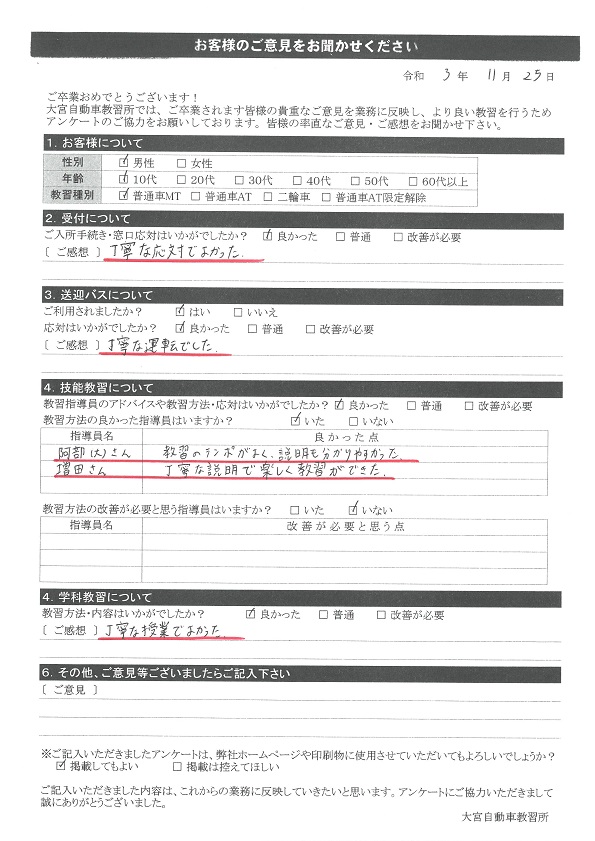 お客様のご意見をお聞かせください
令和 3 年 11 月 25 日
ご卒業おめでとうございます!
大宮自動車教習所では、ご卒業されます皆様の貴重なご意見を業務に反映し、より良い教習を行うため
アンケートのご協力をお願いしております。皆様の率直なご意見・ご感想をお聞かせ下さい。
1. お客様について
性別 ☑ 男性 □ 女性
年齢 ☑ 10代 □ 20代 □ 30代 □ 40代 □ 50代 □ 60代以上
教習種別 ☑ 普通車MT □ 普通車AT □ 二輪車 □ 普通車AT限定解除
2. 受付について
ご入所手続き・窓口応対はいかがでしたか? ☑ 良かった □ 普通 □ 改善が必要
〔 ご感想 〕 丁寧な応対でよかった。
3. 送迎バスについて
ご利用されましたか? ☑ はい □ いいえ
応対はいかがでしたか? ☑ 良かった □ 普通 □ 改善が必要
〔 ご感想 〕 丁寧な運転でした。
4. 技能教習について
教習指導員のアドバイスや教習方法・応対はいかがでしたか? ☑ 良かった □ 普通 □ 改善が必要
教習方法の良かった指導員はいますか? ☑ いた □ いない
指導員名 良かった点
阿部(大)さん 教習のテンポがよく、説明も分かりやすかった。
増田さん 丁寧な説明で楽しく教習ができた。
教習方法の改善が必要と思う指導員はいますか? □ いた ☑ いない
指導員名 改善が必要と思う点
4. 学科教習について
教習方法・内容はいかがでしたか? ☑ 良かった □ 普通 □ 改善が必要
〔 ご感想 〕 丁寧な授業でよかった。
6. その他、ご意見等ございましたらご記入下さい
〔 ご意見 〕
※ご記入いただきましたアンケートは、弊社ホームページや印刷物に使用させていただいてもよろしいでしょうか?
☑ 掲載してもよい □ 掲載は控えてほしい
ご記入いただきました内容は、これからの業務に反映していきたいと思います。アンケートにご協力いただきまして
誠にありがとうございました。
大宮自動車教習所